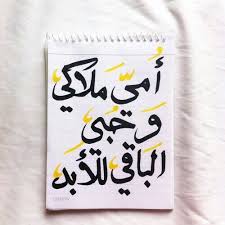 أُمّي ملاكي
و حُبي
الباقي للأبد